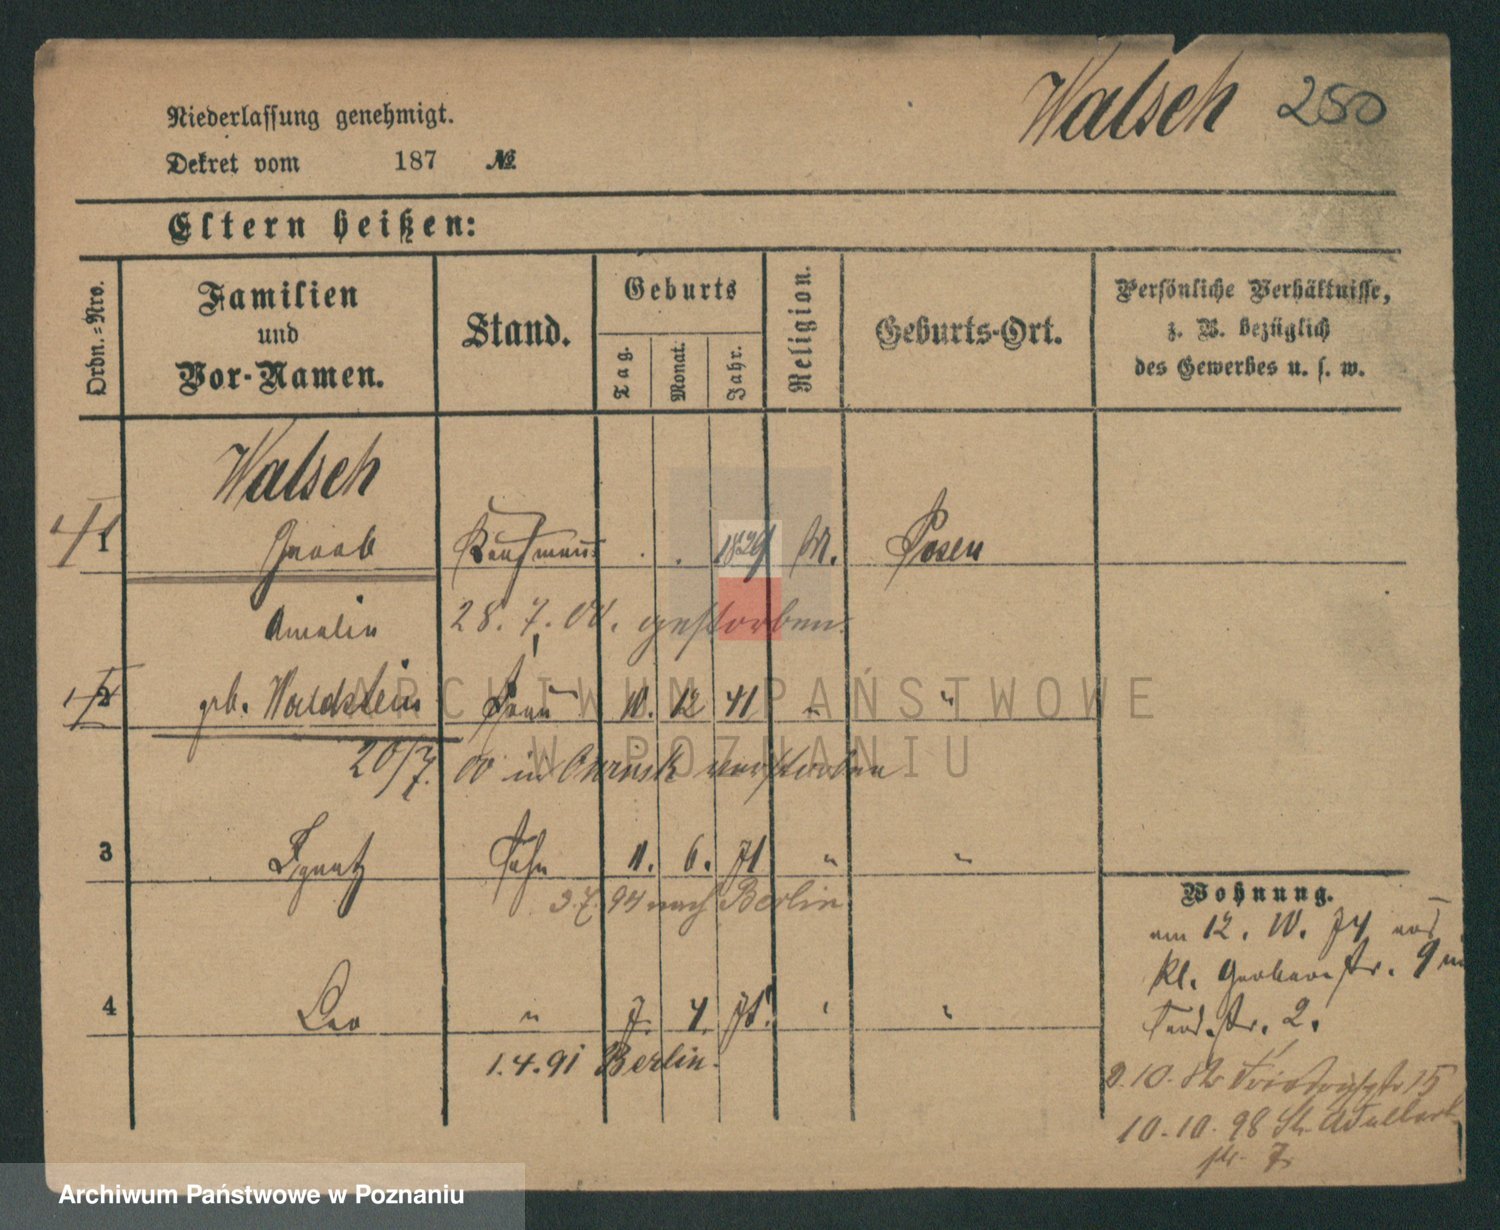 Walsch 250
Niederlassung genehmigt.
Dekret vom 187 №
Eltern heißen:
Ordn.=Nro.
Familien
und
Vor-Namen.
Stand.
Geburts
Tag.
Monat.
Jahr.
Religion.
Geburts-Ort.
Persönliche Verhältnisse,
z. B. bezüglich
des Gewerbes u. s. w.
Walsch
1 Jacob Kaufmann . . 1829 M. Posen
Amalie 28. 7. 00. gestorben.
2 geb. Waldstein Frau 10. 12 41 " "
20/7. 00 in verstorben
3 Ignatz Sohn 11. 6. 71 " "
3.7.94 nach Berlin
4 Leo " 7. 4. " "
1.4.91 Berlin.
Wohnung.
am 12. 10. 74 aus
Kl. Gerberstr. 9 in
str. 2.
10. 82 Friedrichstr 15
10.10.98 St. Adalbert
str. 7
ARCHIWUM PAŃSTWOWE
W POZNANIU
Archiwum Państwowe w Poznaniu